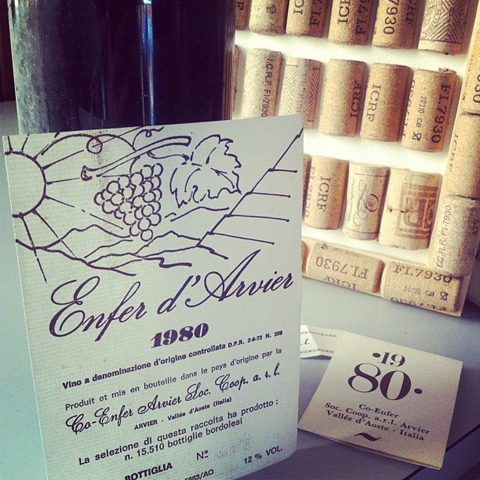 Enfer d'Arvier
1980
Vino a denominazione d'origine controllata D.P.R. 2-6-72 N. 208
Produit et mis en bouteille dans le pays d'origine par la
Co-Enfer Arvier Soc. Coop. a. r. l.
ARVIER - Vallée d'Aoste (Italia)
La selezione di questa raccolta ha prodotto :
n. 15.510 bottiglie bordolesi
BOTTIGLIA N°
/AO 12 % VOL.
•19
80•
Co-Enfer
Soc. Coop. a.r.l. Arvier
Vallée d'Aoste - Italia
ICRF
7930
ICRF
FI.7930
ICRF
ICRF
FI.7930
ICRF
ICRF
FI.7930
FI.7930